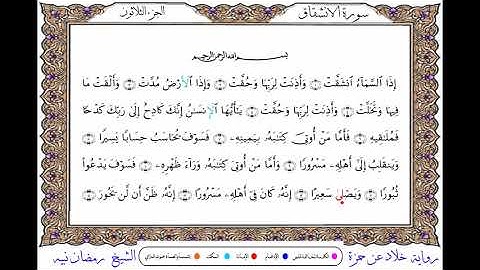 سورة الانشقاق
الجزء الثلاثون
بسم الله الرحمن الرحيم
إِذَا ٱلسَّمَآءُ ٱنشَقَّتۡ ۝ وَأَذِنَتۡ لِرَبِّهَا وَحُقَّتۡ ۝ وَإِذَا ٱلۡأَرۡضُ مُدَّتۡ ۝ وَأَلۡقَتۡ مَا
فِيهَا وَتَخَلَّتۡ ۝ وَأَذِنَتۡ لِرَبِّهَا وَحُقَّتۡ ۝ يَٰٓأَيُّهَا ٱلۡإِنسَٰنُ إِنَّكَ كَادِحٌ إِلَىٰ رَبِّكَ كَدۡحٗا
فَمُلَٰقِيهِ ۝ فَأَمَّا مَنۡ أُوتِيَ كِتَٰبَهُۥ بِيَمِينِهِۦ ۝ فَسَوۡفَ يُحَاسَبُ حِسَابٗا يَسِيرٗا ۝
وَيَنقَلِبُ إِلَىٰٓ أَهۡلِهِۦ مَسۡرُورٗا ۝ وَأَمَّا مَنۡ أُوتِيَ كِتَٰبَهُۥ وَرَآءَ ظَهۡرِهِۦ ۝ فَسَوۡفَ يَدۡعُواْ
ثُبُورٗا ۝ وَيَصۡلَىٰ سَعِيرًا ۝ إِنَّهُۥ كَانَ فِيٓ أَهۡلِهِۦ مَسۡرُورًا ۝ إِنَّهُۥ ظَنَّ أَن لَّن يَحُورَ ۝
رواية خلاد عن حمزة
الشيخ رمضان نبيه